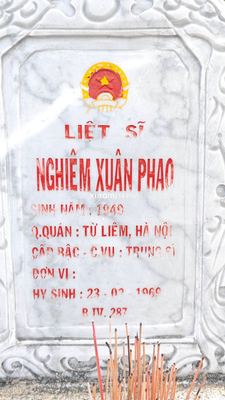 LIỆT SĨ
NGHIÊM XUÂN PHAO
SINH NĂM : 1949
Q.QUÁN : TỪ LIÊM, HÀ NỘI
CẤP BẬC - C.VỤ : TRUNG SĨ
ĐƠN VỊ :
HY SINH : 23 - 02 - 1969
R.IV. 287